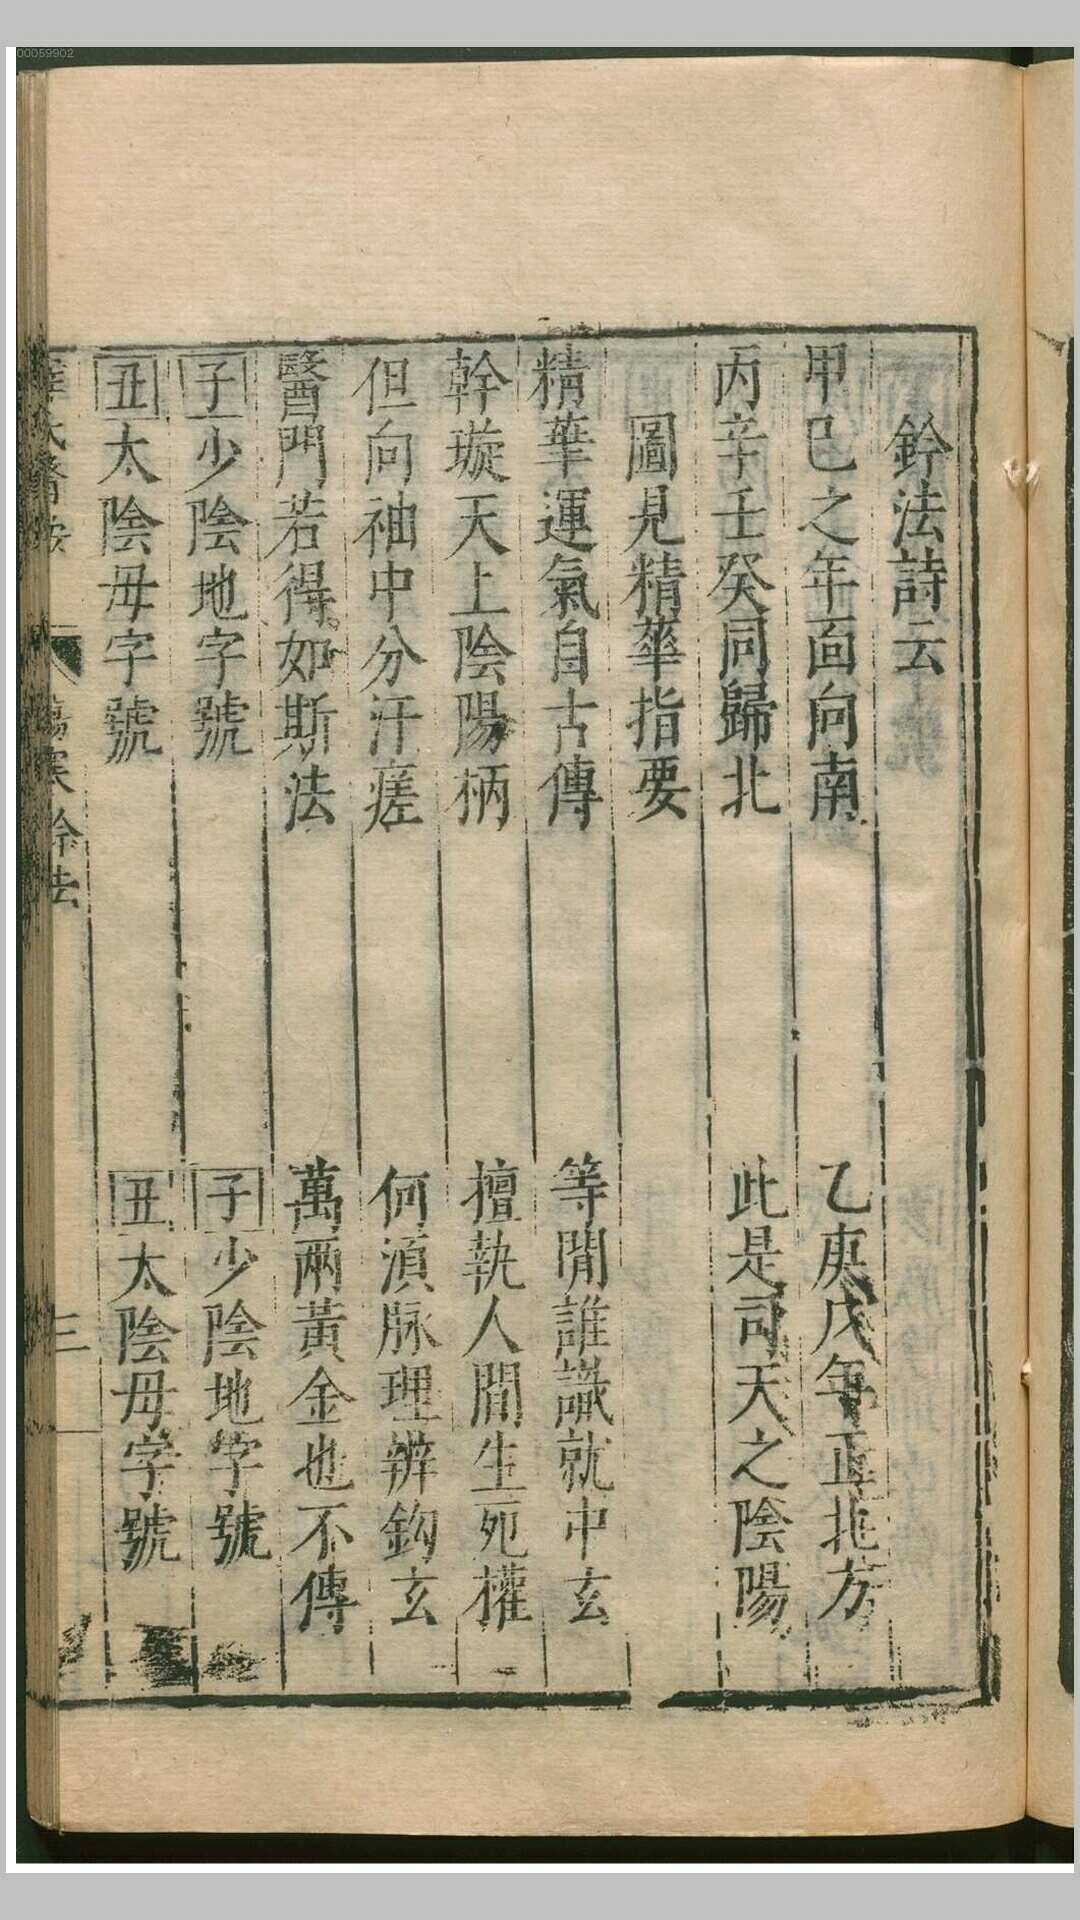 00059902
鈐法詩云
甲己之年面向南　乙庚戊年正北方
丙辛壬癸同歸北　此是司天之陰陽
圖見精華指要
精華運氣自古傳　等閒誰識就中玄
幹璇天上陰陽柄　擅執人間生死權
但向袖中分汗瘥　何湏脉理辨鈎玄
醫門若得如斯法　萬兩黃金也不傳
子少陰地字號　子少陰地字號
丑太陰毋字號　丑太陰毋字號
三